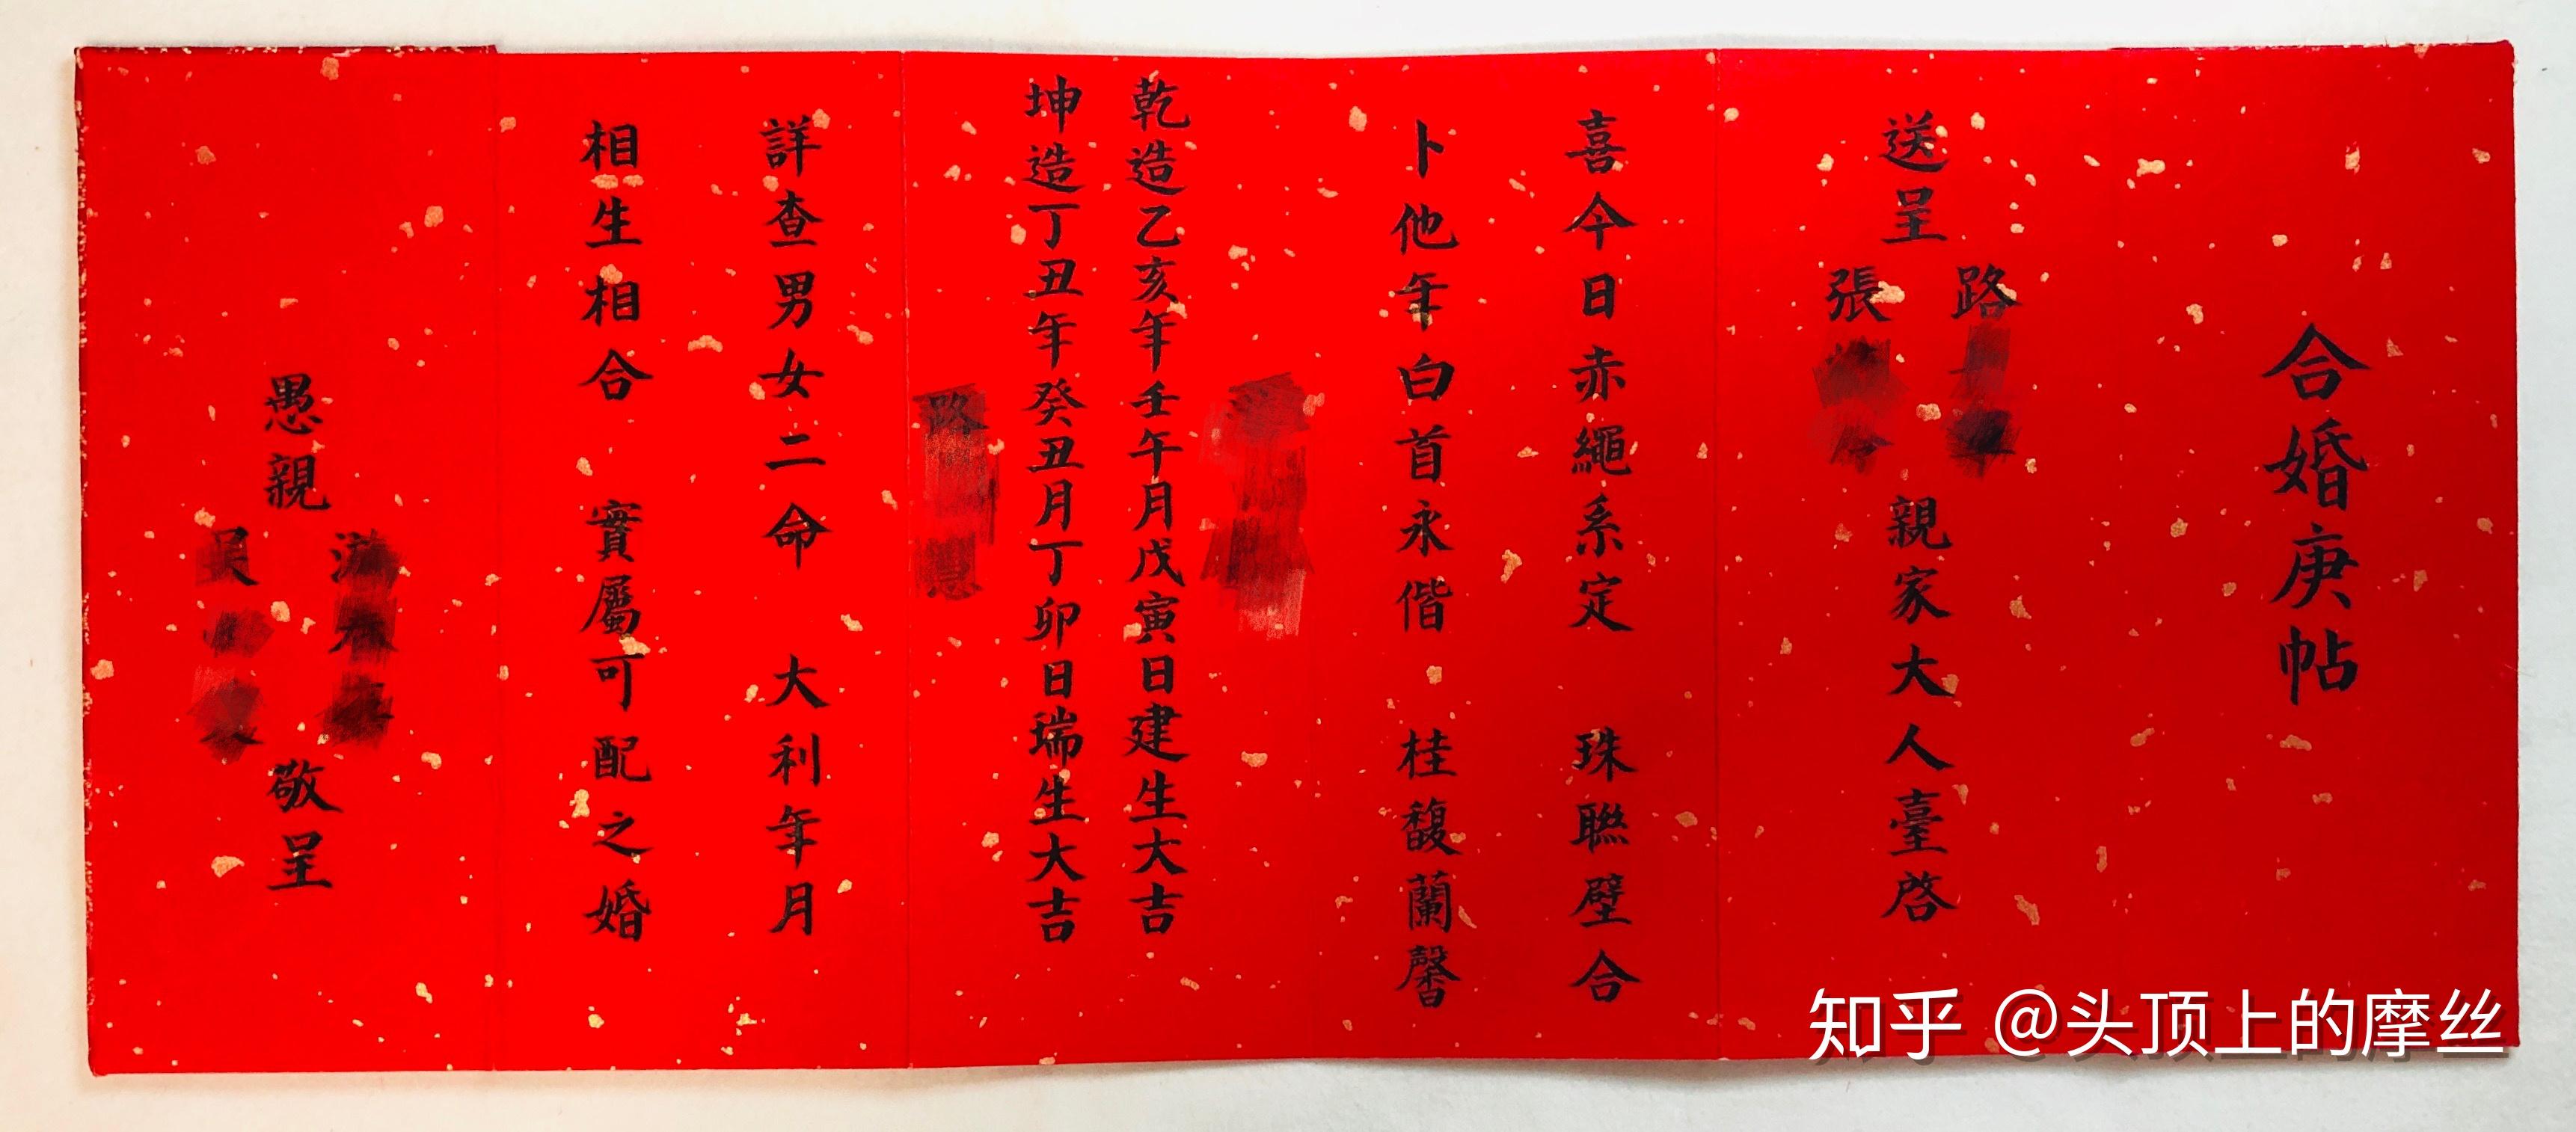 合婚庚帖
送呈
路
張
親家大人臺啓
喜今日赤繩系定 珠聯璧合
卜他年白首永偕 桂馥蘭馨
乾造乙亥年壬午月戊寅日建生大吉
坤造丁丑年癸丑月丁卯日瑞生大吉
路
詳查男女二命 大利年月
相生相合 實屬可配之婚
愚親
敬呈
知乎 @头顶上的摩丝